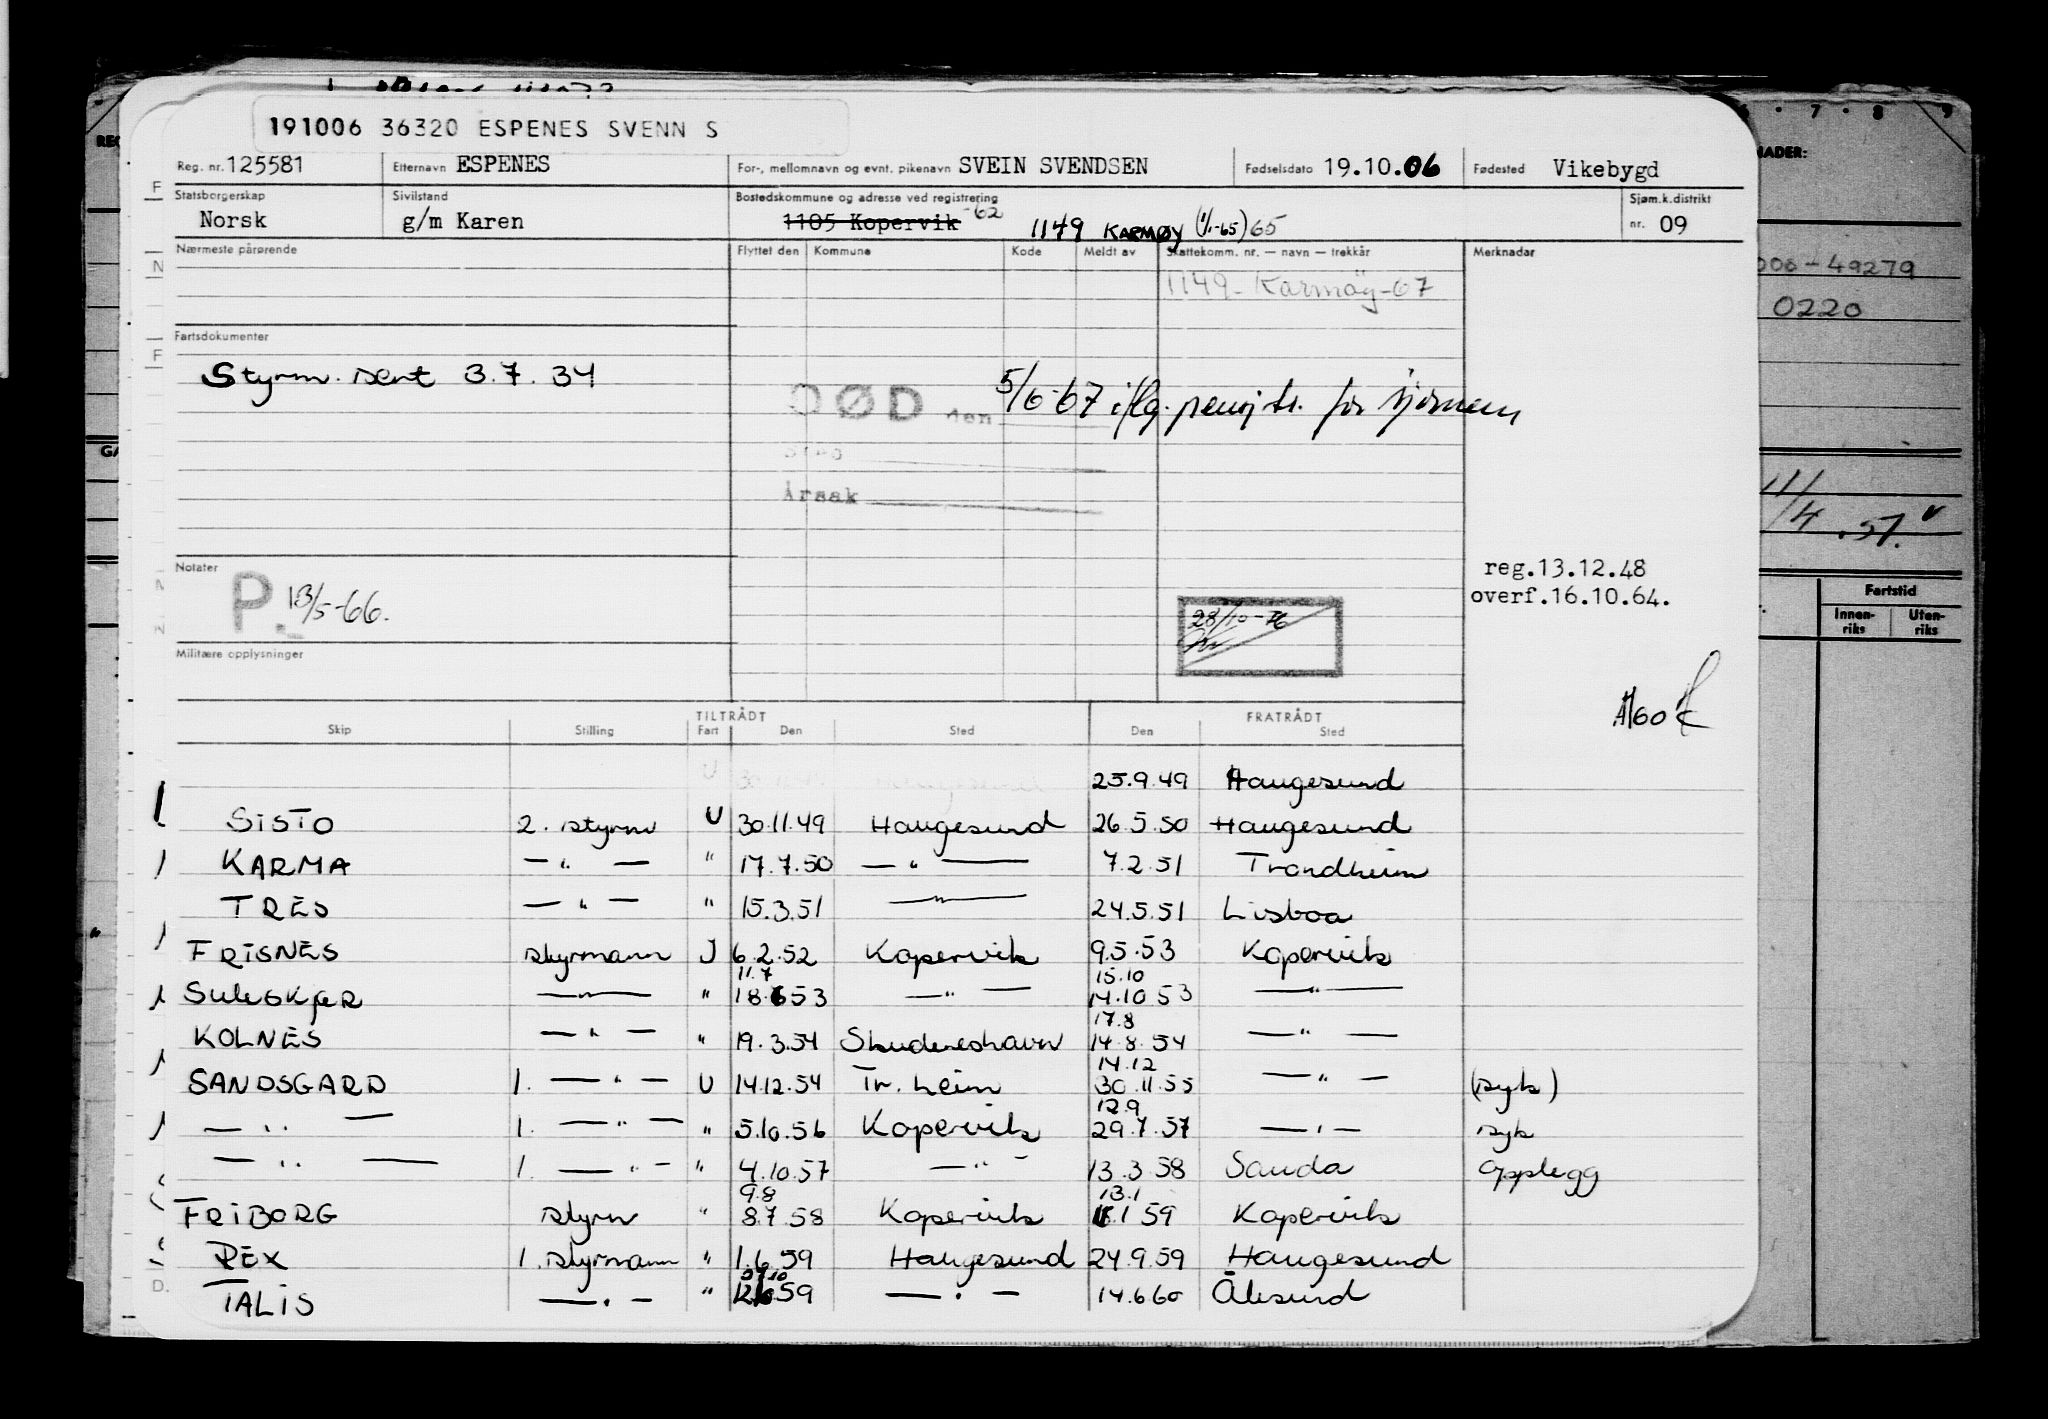 191006 36320 ESPENES SVENN S
Reg. nr. 125581 Etternavn ESPENES For-, mellomnavn og evnt. pikenavn SVEIN SVENDSEN Fødselsdato 19.10.06 Fødested Vikebygd
Statsborgerskap Norsk Sivilstand g/m Karen Bostedskommune og adresse ved registrering 1105 Kopervik -62 1149 KARMØY (1/1-65) 65 Sjøm.k.distrikt nr. 09
Nærmeste pårørende Flyttet den Kommune Kode Meldt av Skattekomm. nr. — navn — trekkår Merknader
1149 - Karmøy - 67
006 - 49279
0220
Fartsdokumenter
Styrm. sert 3.7.34
DØD den 5/6-67 iflg. pensj.tr. for sjømenn
Sted
Årsak
11/4.57.
Notater
P. 13/5-66.
28/10-76
reg.13.12.48
overf.16.10.64.
Fartstid
Innenriks Utenriks
Militære opplysninger
TILTRÅDT FRATRÅDT
Skip Stilling Fart Den Sted Den Sted
U 30.11.49 Haugesund 25.9.49 Haugesund
SISTO 2. styrm U 30.11.49 Haugesund 26.5.50 Haugesund
KARMA — " — " 17.7.50 — " — 7.2.51 Trondheim
TRES — " — " 15.3.51 — " — 24.5.51 Lisboa
FRISNES styrmann J 6.2.52 Kopervik 9.5.53 Kopervik
11.7 15.10
SULESKJER — " — " 18.6 53 — " — 14.10 53 — " —
17.8
KOLNES — " — " 19.3.54 Skudeneshavn 14.8.54 — " —
14.12
SANDSGARD 1. — " — U 14.12.54 Tr. heim 30.11.55 — " — (syk)
12.9
— " — 1. — " — " 5.10.56 Kopervik 29.7.57 — " — syk
— " — 1. — " — " 4.10.57 — " — 13.3.58 Sauda Opplegg
9.8 13.1
FRIBORG styrm " 8.7.58 Kopervik 1 59 Kopervik
REX 1. styrmann " 1.6.59 Haugesund 24.9.59 Haugesund
TALIS — " — " 59 — " — 14.6 60 Ålesund